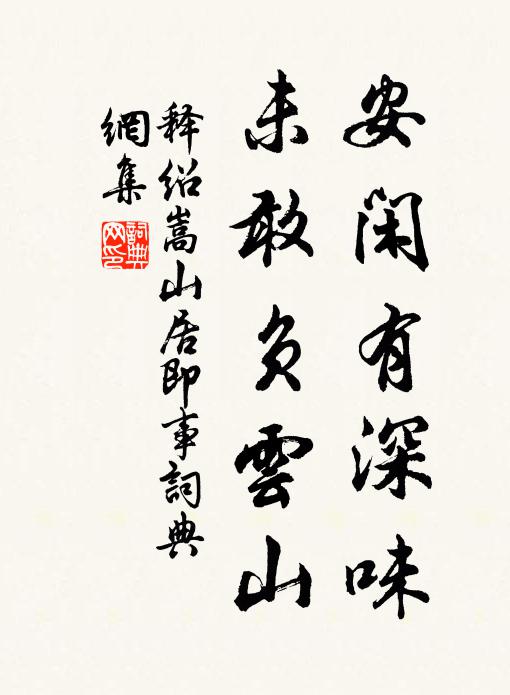 安閑有深味
未敢負雲山
释绍嵩山居即事詞典
網集
詞典
网印